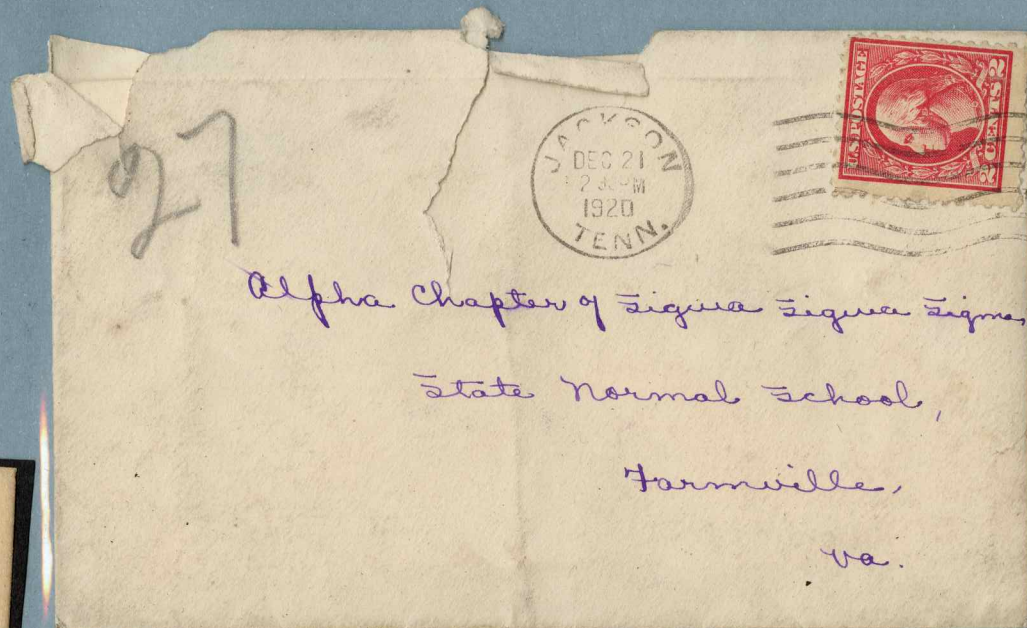 27
JACKSON
DEC 21
1920
TENN.
U.S. POSTAGE
2 CENTS 2
Alpha Chapter of Sigma Sigma Sigma
State Normal School,
Farmville,
Va.